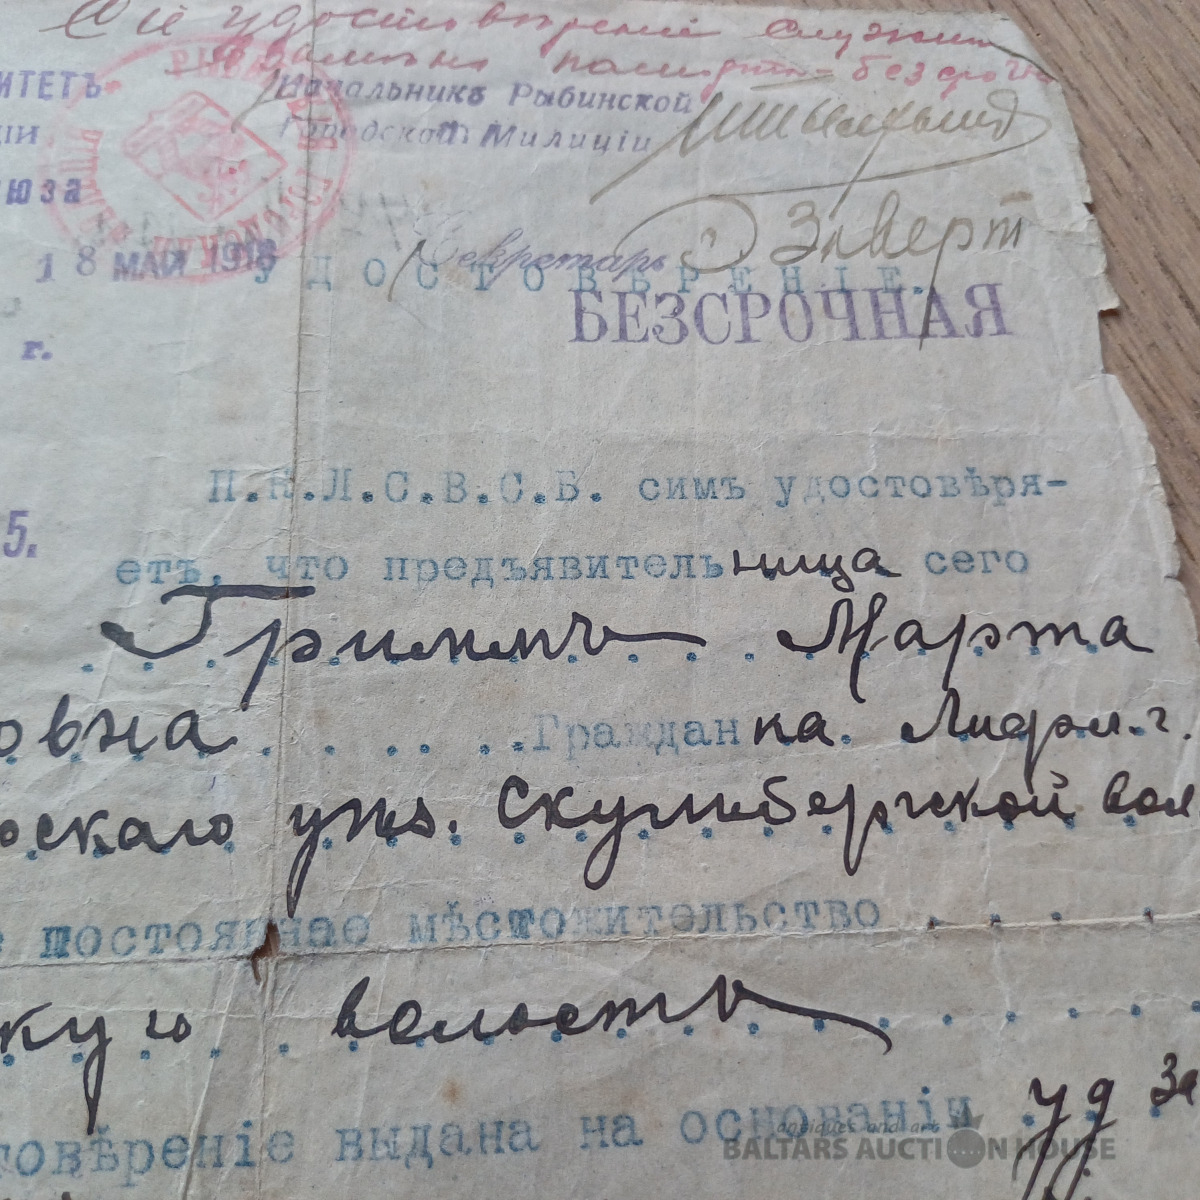 Сiе удостовѣренiе служит
паспортом безсрочн
ИТЕТЪ Начальникъ Рыбинской
ии Городской Милицiи
ЮЗА
Секретарь Экверт
18 МАЙ 1918
УДОСТОВѢРЕНIЕ.
БЕЗСРОЧНАЯ
г.
П.К.Л.С.В.С.Б. симъ удостовѣря-
5.
етъ, что предъявительница сего
Гриммъ Марта
овна Гражданка Лифл. г.
скаго уѣз. Скуmбергской вол
постоянное мѣстожительство
кую волость
товѣренiе выдана на основанiи уд За
antiques and art
BALTARS AUCTION HOUSE